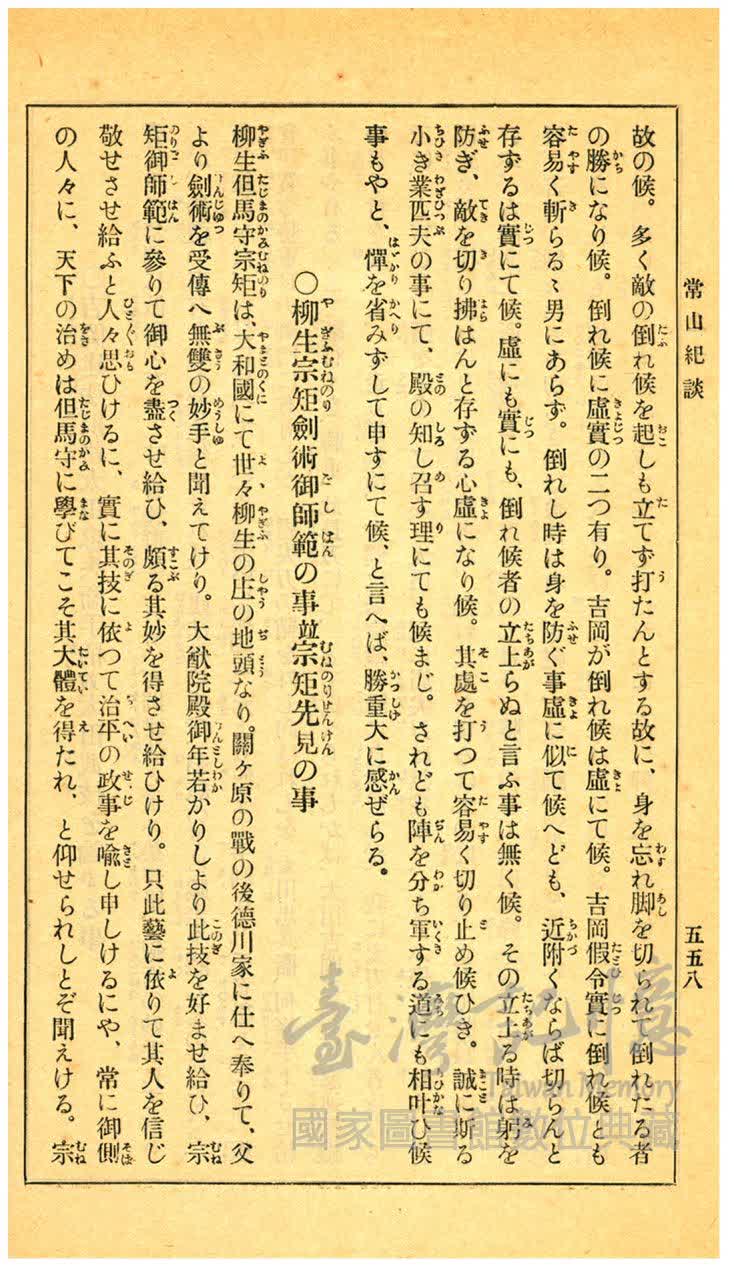 常山紀談
五五八
故の候。多く敵の倒れ候を起しも立てず打たんとする故に、身を忘れ脚を切られて倒れたる者
の勝になり候。倒れ候に虛實の二つ有り。吉岡が倒れ候は虛にて候。吉岡假令實に倒れ候とも
容易く斬らるゝ男にあらず。倒れし時は身を防ぐ事虛に似て候へども、近附くならば切らんと
存ずるは實にて候。虛にも實にも、倒れ候者の立上らぬと言ふ事は無く候。その立上る時は躬を
防ぎ、敵を切り拂はんと存ずる心虛になり候。其處を打つて容易く切り止め候ひき。誠に斯る
小き業匹夫の事にて、殿の知し召す理にても候まじ。されども陣を分ち軍する道にも相叶ひ候
事もやと、憚を省みずして申すにて候、と言へば、勝重大に感ぜらる。
○柳生宗矩劍術御師範の事竝宗矩先見の事
柳生但馬守宗矩は、大和國にて世々柳生の庄の地頭なり。關ヶ原の戰の後德川家に仕へ奉りて、父
より劍術を受傳へ無雙の妙手と聞えてけり。大猷院殿御年若かりしより此技を好ませ給ひ、宗
矩御師範に參りて御心を盡させ給ひ、頗る其妙を得させ給ひけり。只此藝に依りて其人を信じ
敬せさせ給ふと人々思ひけるに、實に其技に依つて治平の政事を喩し申しけるにや、常に御側
の人々に、天下の治めは但馬守に學びてこそ其大體を得たれ、と仰せられしとぞ聞えける。宗
臺灣記憶
Taiwan Memory
國家圖書館數位典藏